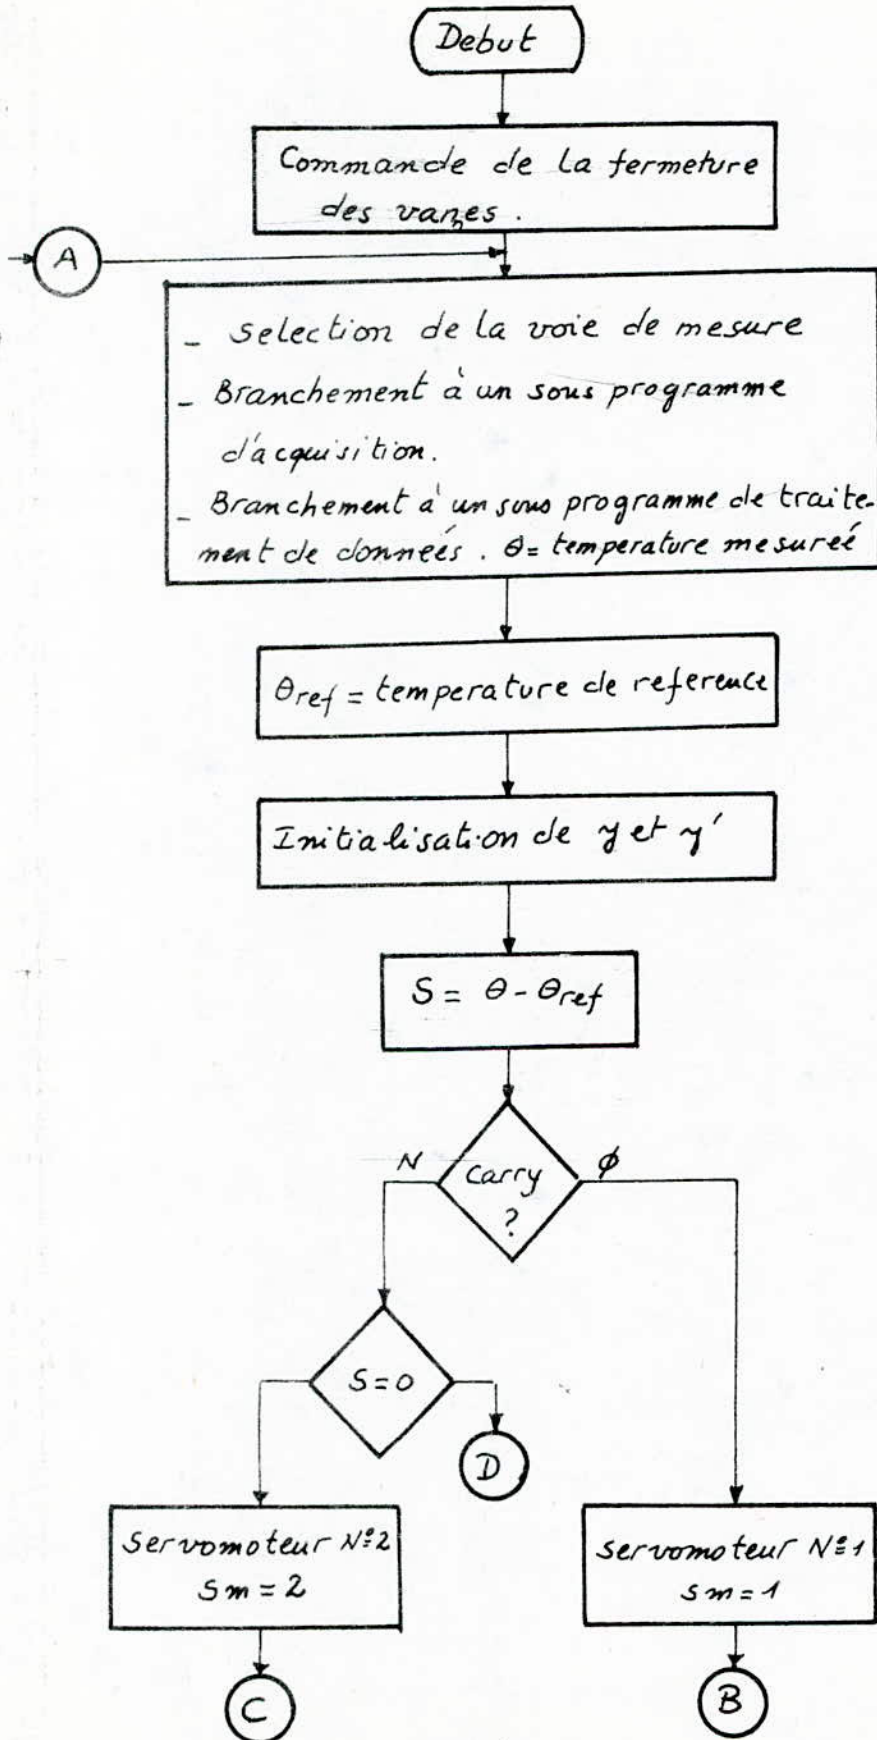 Debut
Commande de la fermeture
des vannes.
A
- selection de la voie de mesure
- Branchement à un sous programme
d'acquisition.
- Branchement à un sous programme de traite-
ment de donneés. θ = temperature mesureé
θref = temperature de reference
Initialisation de y et y'
S = θ - θref
N
Carry
?
ϕ
S=0
D
Servomoteur N°2
Sm = 2
servomoteur N°1
sm = 1
C
B